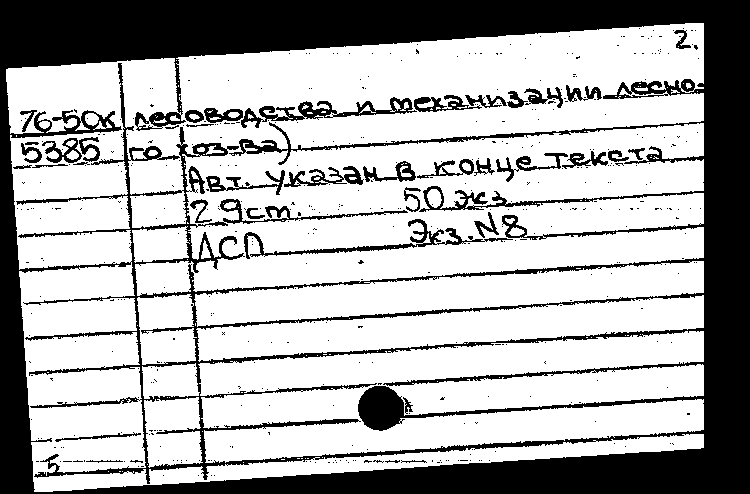 2.
76-50к лесоводства и механизации лесно-
5385 го хоз-ва).
Авт. указан в конце текста
29ст. 50 экз
ДСП Экз. N8
5